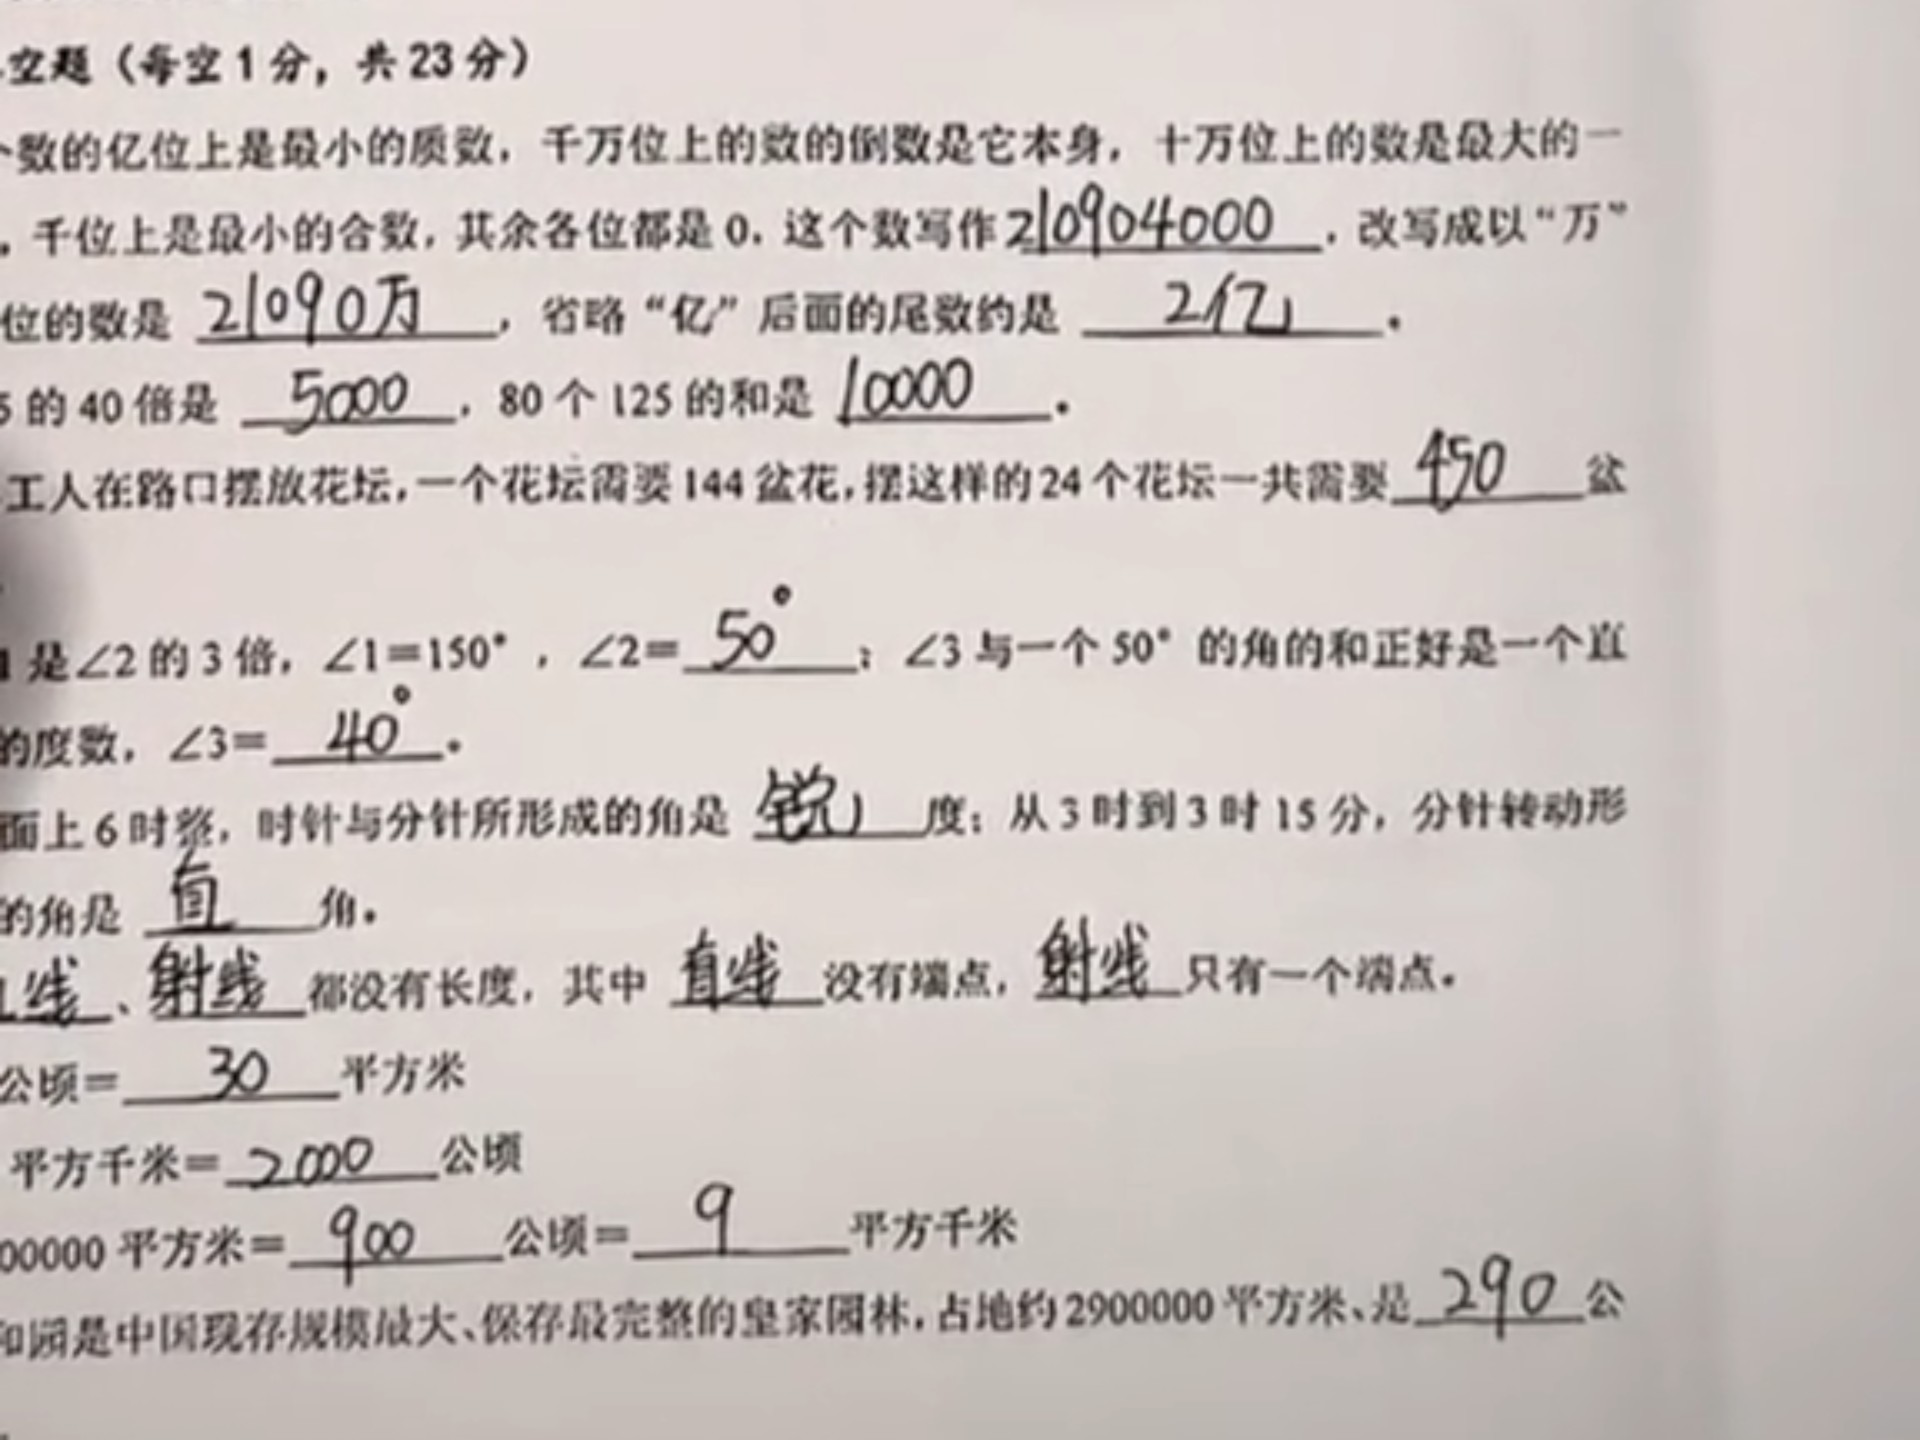 空题（每空1分，共23分）
个数的亿位上是最小的质数，千万位上的数的倒数是它本身，十万位上的数是最大的一
，千位上是最小的合数，其余各位都是0，这个数写作210904000，改写成以“万”
位的数是 21090万，省略“亿”后面的尾数约是 2亿。
5的40倍是 5000，80个125的和是 10000。
工人在路口摆放花坛，一个花坛需要144盆花，摆这样的24个花坛一共需要 450 盆
1是∠2的3倍，∠1＝150°，∠2＝50°；∠3与一个50°的角的和正好是一个直
的度数，∠3＝40°。
面上6时整，时针与分针所形成的角是 锐 度；从3时到3时15分，分针转动形
的角是 直 角。
线、射线都没有长度，其中 直线 没有端点，射线只有一个端点。
公顷＝30平方米
平方千米＝2000公顷
00000平方米＝900公顷＝9平方千米
和园是中国现存规模最大、保存最完整的皇家园林，占地约2900000平方米、是 290 公